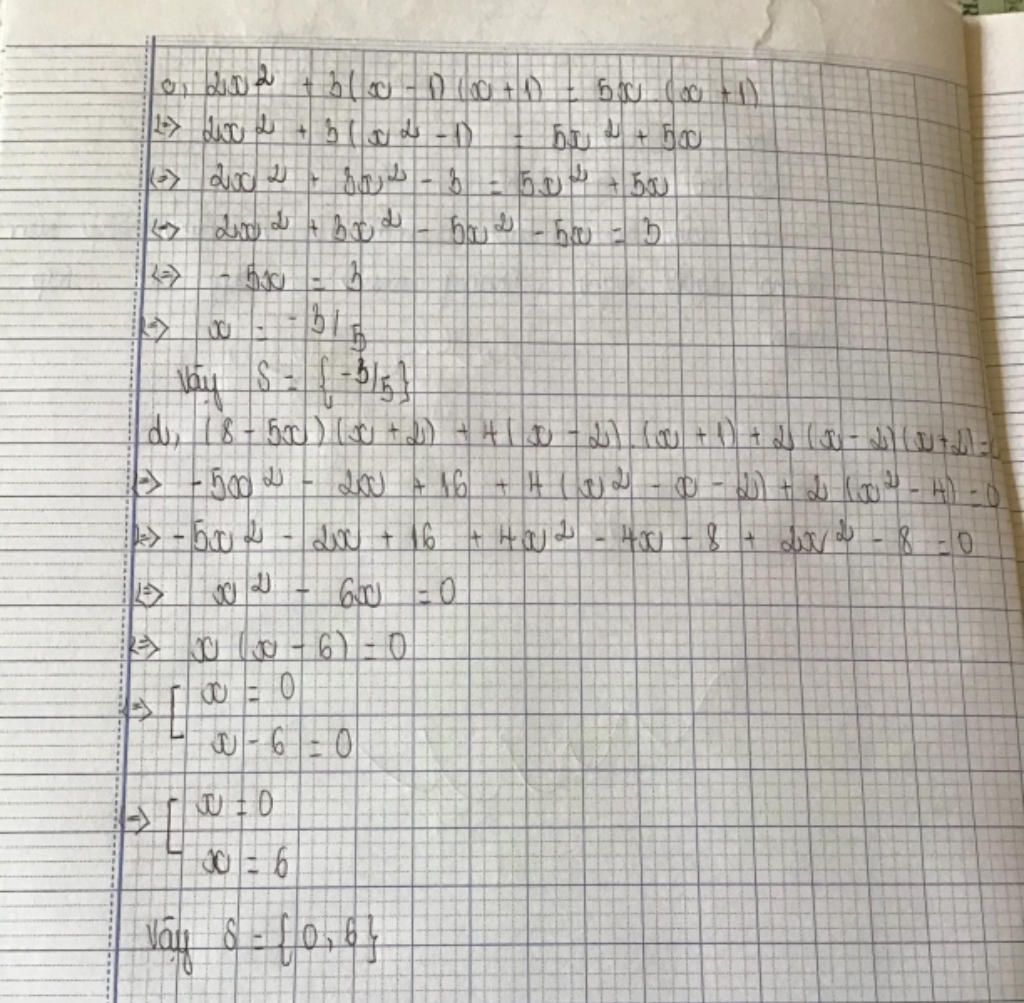 c, 2x² + 3(x - 1)(x + 1) = 5x (x + 1)
<=> 2x² + 3(x² - 1) = 5x² + 5x
<=> 2x² + 3x² - 3 = 5x² + 5x
<=> 2x² + 3x² - 5x² - 5x = 3
<=> -5x = 3
<=> x = -3/5
Vậy S = {-3/5}
d, (8 - 5x)(x + 2) + 4(x - 2).(x + 1) + 2(x - 2)(x + 2) = 0
<=> -5x² - 2x + 16 + 4(x² - x - 2) + 2(x² - 4) = 0
<=> -5x² - 2x + 16 + 4x² - 4x - 8 + 2x² - 8 = 0
<=> x² - 6x = 0
<=> x(x - 6) = 0
<=> [ x = 0
x - 6 = 0
<=> [ x = 0
x = 6
Vậy S = {0, 6}